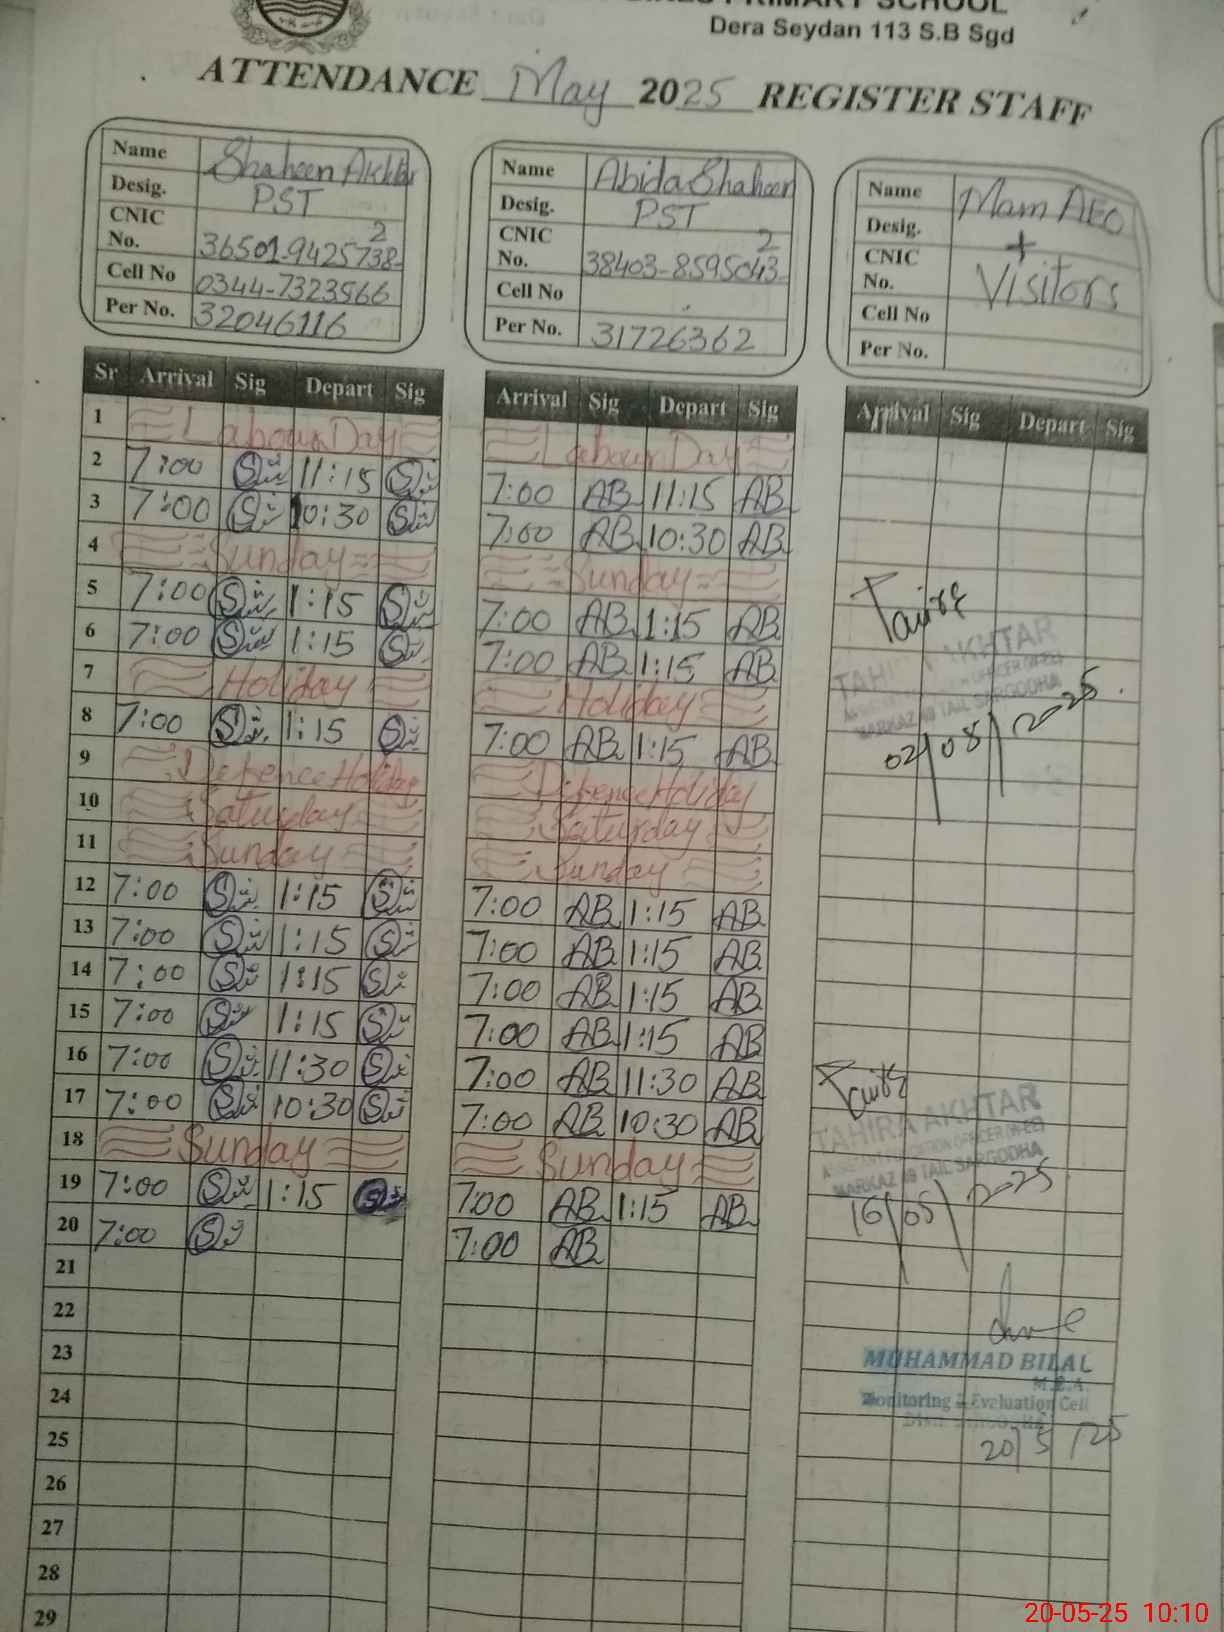 PRIMARY SCHOOL
Dera Seydan 113 S.B Sgd
ATTENDANCE May 2025 REGISTER STAFF
Name Shaheen Akhtar
Desig. PST
CNIC No. 36501-9425738-2
Cell No 0344-7323566
Per No. 32046116
Name Abida Shaheen
Desig. PST
CNIC No. 38403-8595043-2
Cell No
Per No. 31726362
Name Mam AEO
Desig. +
CNIC No. Visitors
Cell No
Per No.
Sr Arrival Sig Depart Sig Arrival Sig Depart Sig Arrival Sig Depart Sig
1 Labour Day Labour Day
2 7:00 11:15 7:00 AB 11:15 AB
3 7:00 10:30 7:00 AB 10:30 AB
4 Sunday Sunday
5 7:00 1:15 7:00 AB 1:15 AB
6 7:00 1:15 7:00 AB 1:15 AB
7 Holiday Holiday
8 7:00 1:15 7:00 AB 1:15 AB
9 Defence Holiday Defence Holiday
10 Saturday Saturday
11 Sunday Sunday
12 7:00 1:15 7:00 AB 1:15 AB
13 7:00 1:15 7:00 AB 1:15 AB
14 7:00 1:15 7:00 AB 1:15 AB
15 7:00 1:15 7:00 AB 1:15 AB
16 7:00 11:30 7:00 AB 11:30 AB
17 7:00 10:30 7:00 AB 10:30 AB
18 Sunday Sunday
19 7:00 1:15 7:00 AB 1:15 AB
20 7:00 7:00 AB
21
22
23
24
25
26
27
28
29
TAHIRA AKHTAR
MARKAZ 49 TAIL SARGODHA
02/08/2025
TAHIRA AKHTAR
MARKAZ 49 TAIL SARGODHA
16/05/2025
MUHAMMAD BILAL
M.E.A.
Monitoring & Evaluation Cell
20/5/25
20-05-25 10:10